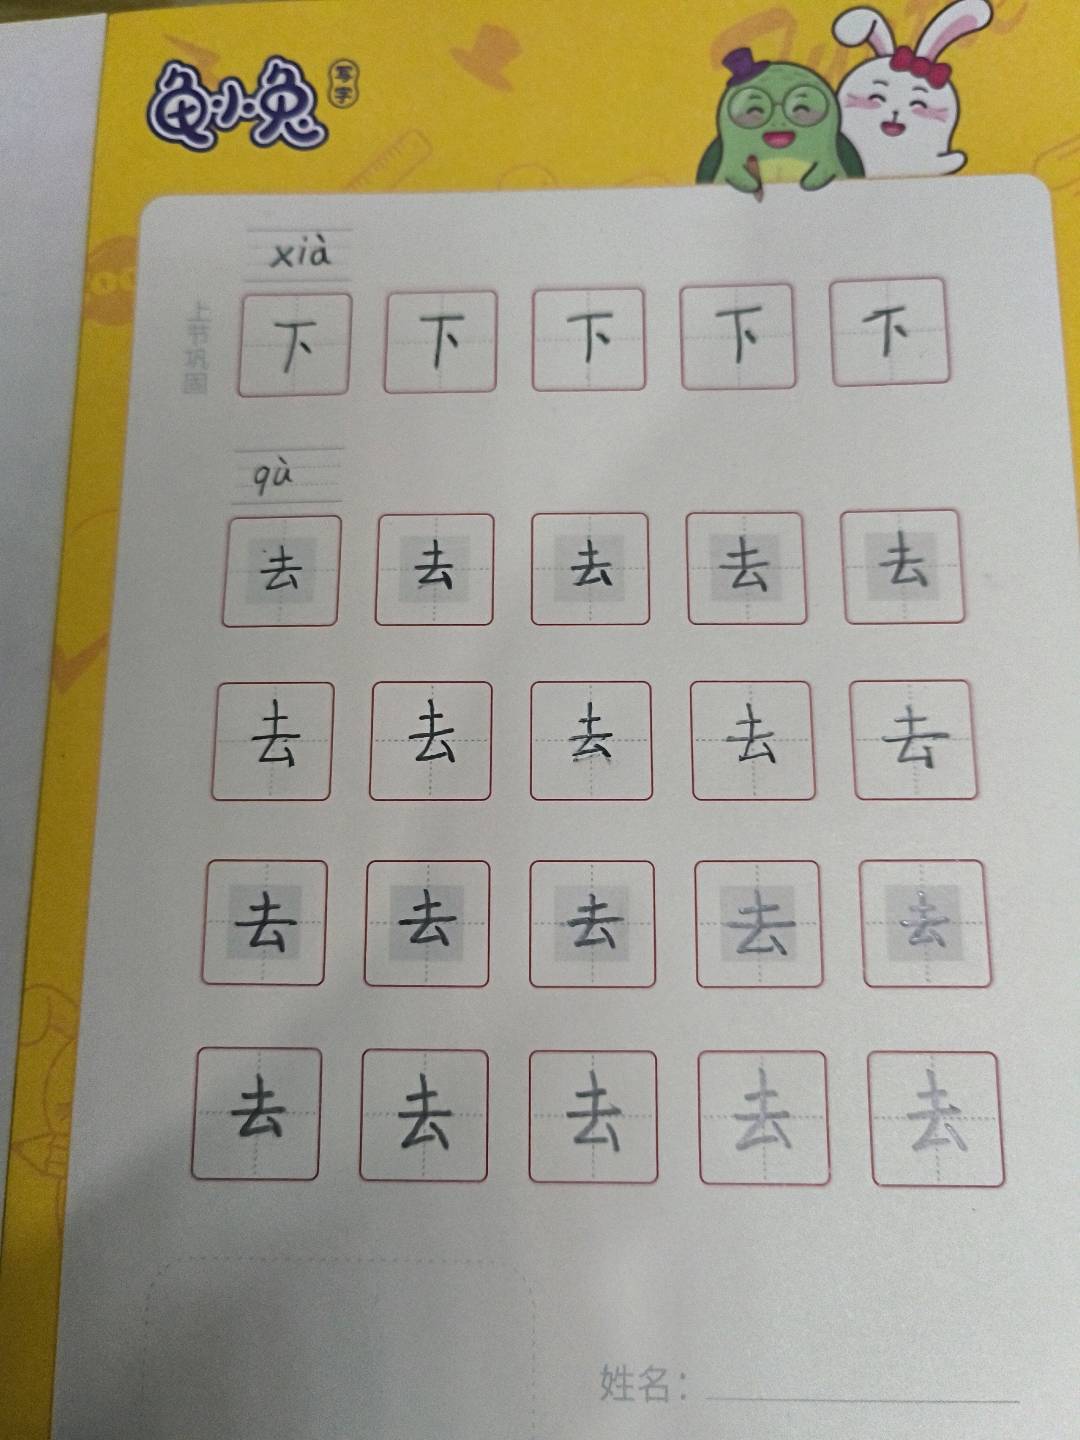 龟小兔 写字
xià
上节巩固
下 下 下 下 下
qù
去 去 去 去 去
去 去 去 去 去
去 去 去 去 去
去 去 去 去 去
姓名：